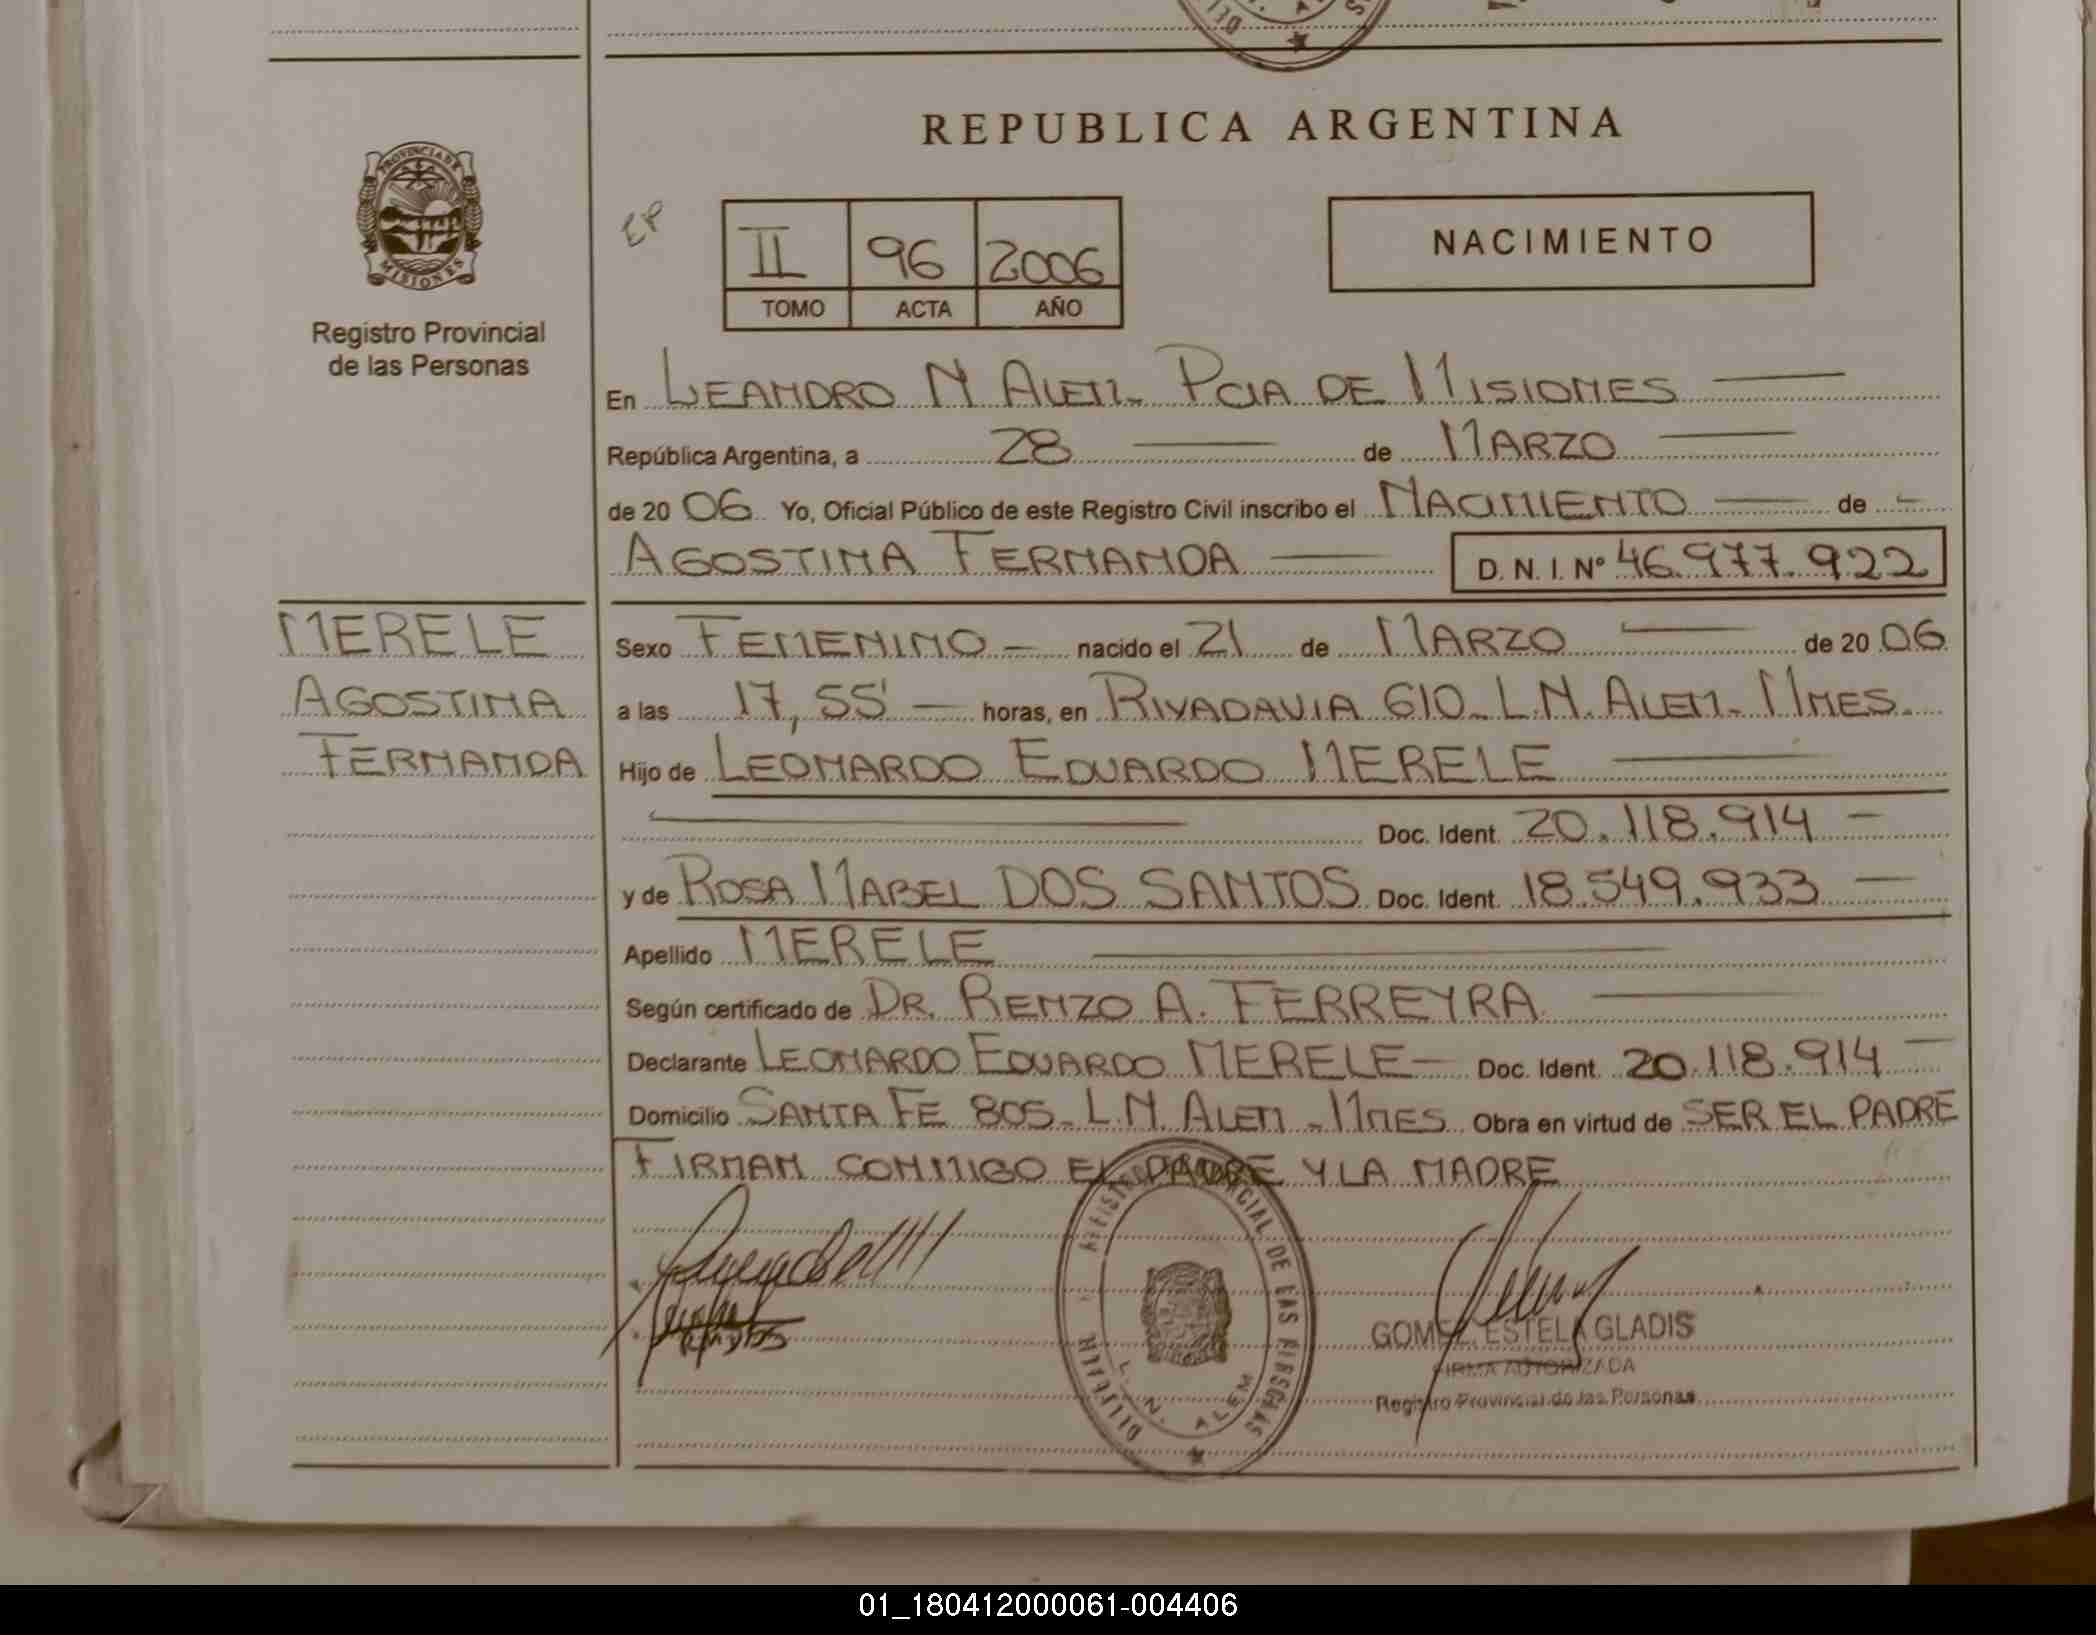 REPUBLICA ARGENTINA
PROVINCIA DE
MISIONES
Registro Provincial
de las Personas
EP
II 96 2006
TOMO ACTA AÑO
NACIMIENTO
En LEANDRO N ALEM - PCIA DE MISIONES
República Argentina, a 28 de MARZO
de 20 06 Yo, Oficial Público de este Registro Civil inscribo el NACIMIENTO de
AGOSTINA FERNANDA D. N. I. Nº 46.977.922
MERELE
AGOSTINA
FERNANDA
Sexo FEMENINO nacido el 21 de MARZO de 20 06
a las 17,55' horas, en RIVADAVIA 610 - L.N. ALEM - MNES.
Hijo de LEONARDO EDUARDO MERELE
Doc. Ident. 20.118.914
y de ROSA MABEL DOS SANTOS Doc. Ident. 18.549.933
Apellido MERELE
Según certificado de DR. RENZO A. FERREYRA
Declarante LEONARDO EDUARDO MERELE Doc. Ident. 20.118.914
Domicilio SANTA FE 805 - L.N. ALEM - MNES Obra en virtud de SER EL PADRE
FIRMAN CONMIGO EL PADRE Y LA MADRE
DE LAS PERSONAS
L. N. ALEM
GOMEZ, ESTELA GLADIS
FIRMA AUTORIZADA
Registro Provincial de las Personas
01_180412000061-004406